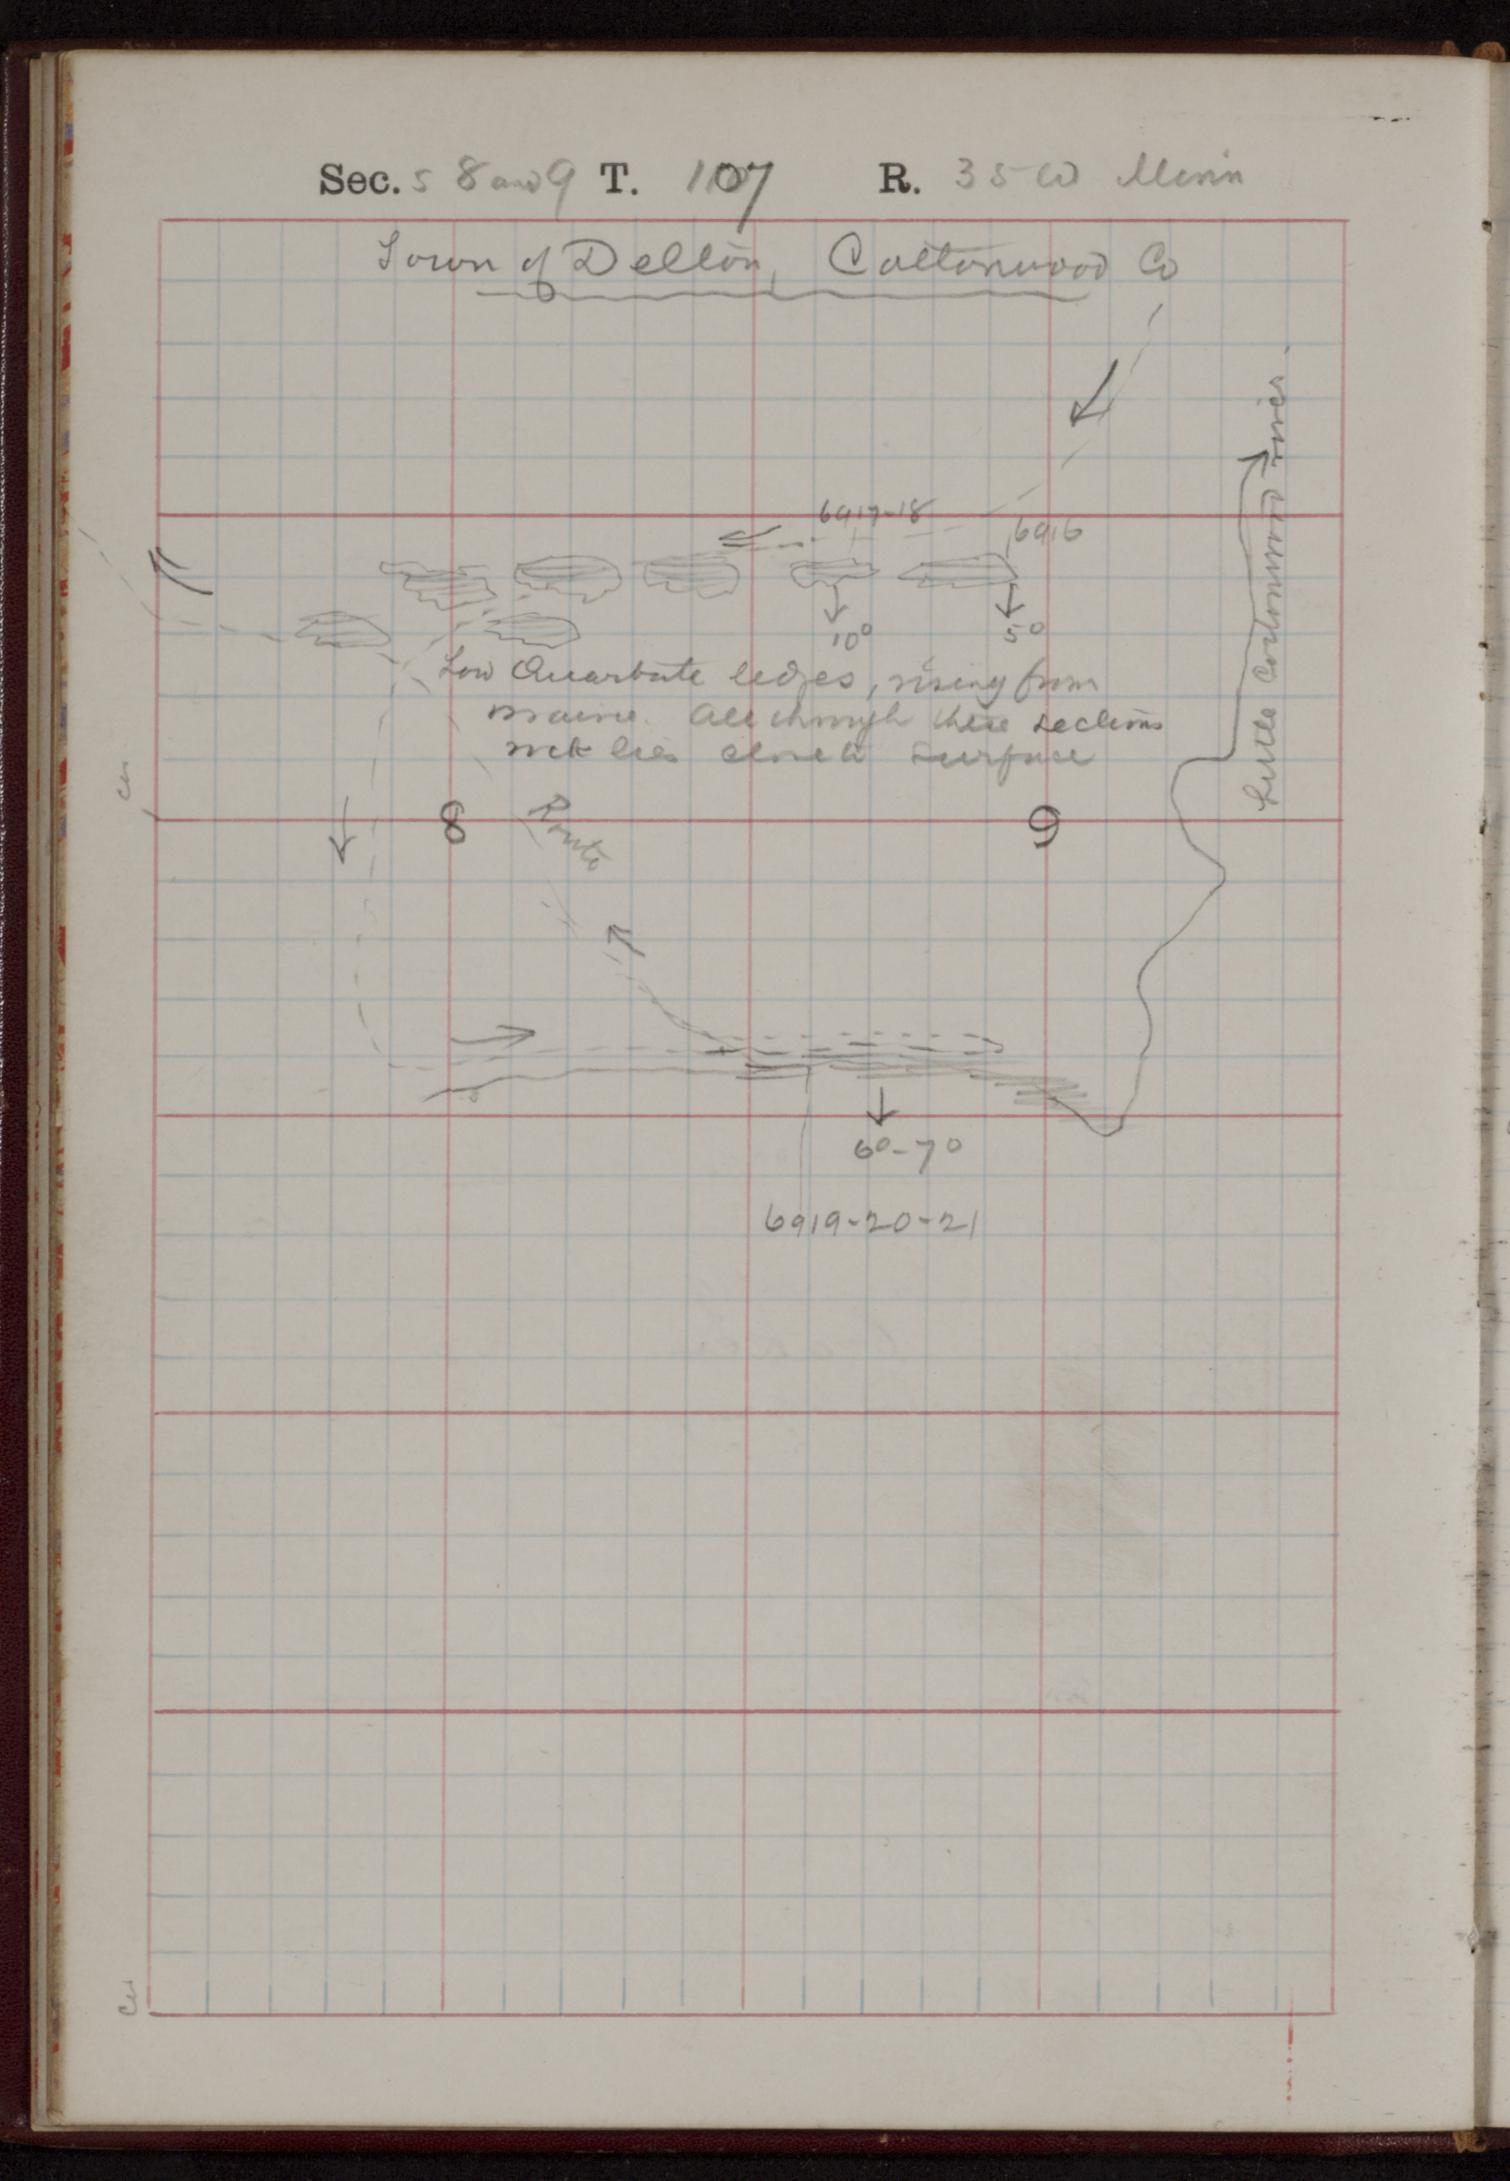 Sec. s 8 and 9 T. 107 R. 35 W Minn
Town of Delton, Cottonwood Co
6917-18
6916
10°
5°
Low Quartzite ledges, rising from
prairie. All through these sections
rock lies close to surface
Little Cottonwood river.
8
Route
9
6°-7°
6919-20-21